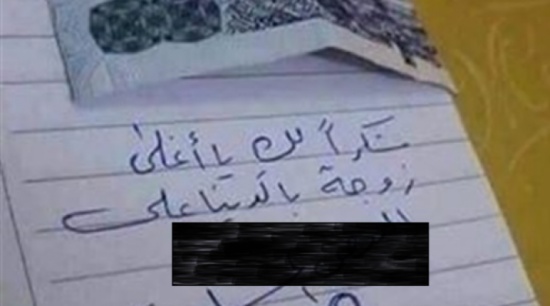 شكراً لك يا أغلى
زوجة بالدينا على